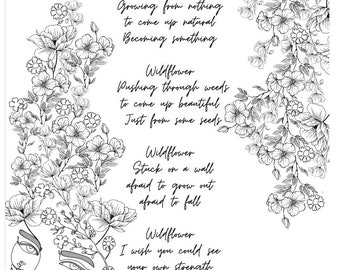 Growing from nothing
to come up natural
Becoming something
Wildflower
Pushing through weeds
to come up beautiful
Just from some seeds
Wildflower
Stuck on a wall
afraid to grow out
afraid to fall
Wildflower
I wish you could see
your own strength